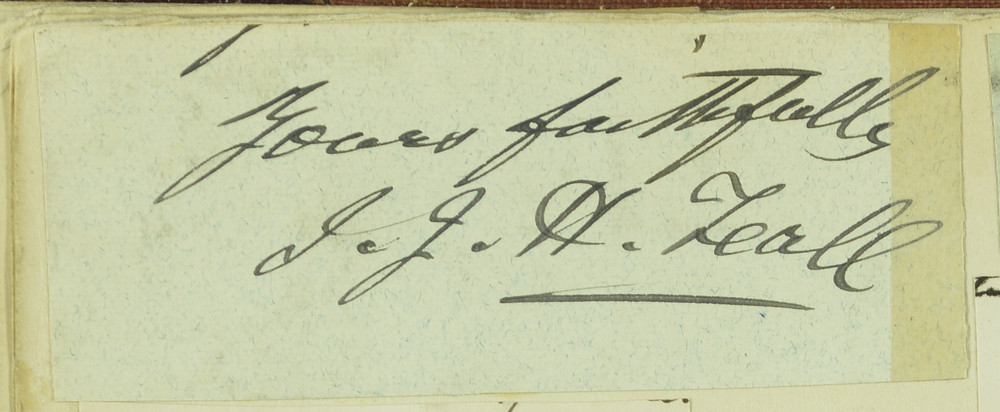 Yours faithfully
J. J. H. Teall